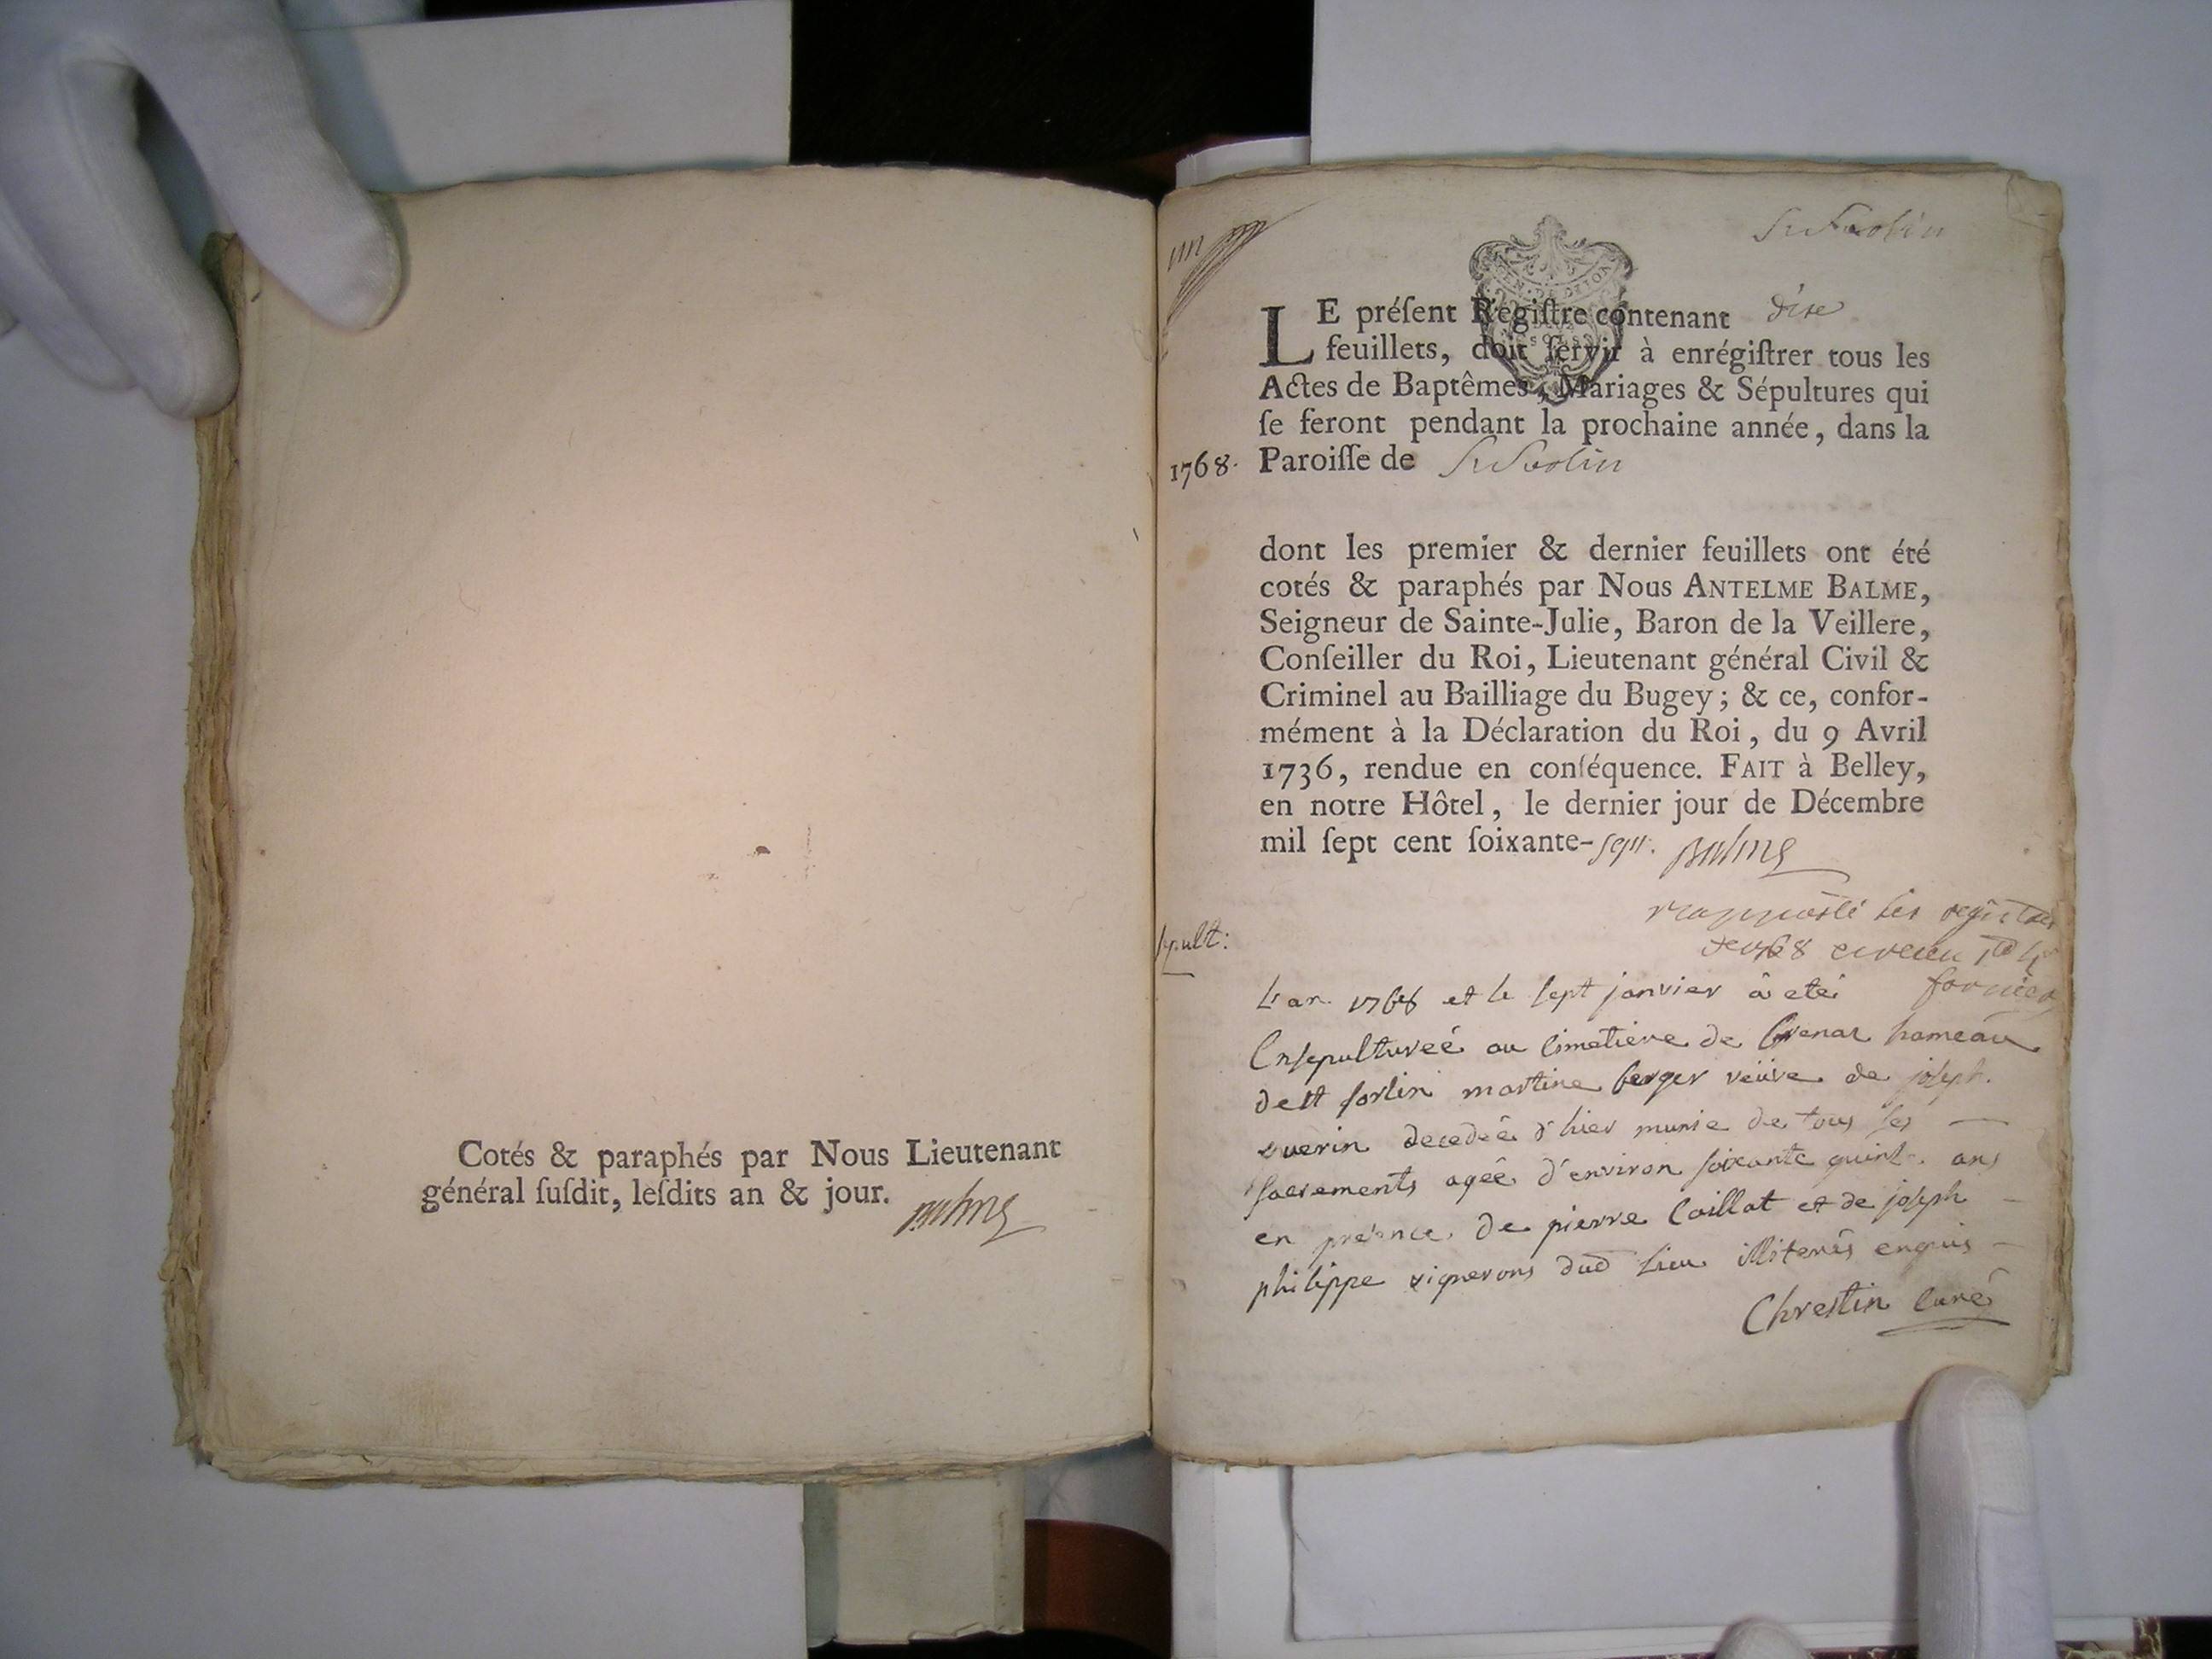 Cotés & paraphés par Nous Lieutenant
général ſuſdit, leſdits an & jour. Balme
St Sorlin
LE préſent Régiſtre contenant dixe
feuillets, doit ſervir à enrégiſtrer tous les
Actes de Baptêmes, Mariages & Sépultures qui
ſe feront pendant la prochaine année, dans la
1768. Paroiſſe de St Sorlin
dont les premier & dernier feuillets ont été
cotés & paraphés par Nous ANTELME BALME,
Seigneur de Sainte-Julie, Baron de la Veillere,
Conſeiller du Roi, Lieutenant général Civil &
Criminel au Bailliage du Bugey; & ce, confor-
mément à la Déclaration du Roi, du 9 Avril
1736, rendue en conſéquence. FAIT à Belley,
en notre Hôtel, le dernier jour de Décembre
mil ſept cent ſoixante-sept. Balme
rapporté les registres
de 1768
sepult:
L'an 1768 et le sept janvier à eté
Ensepultureé au Cimetiere de hameau
de st sorlin martine berger veuve de joseph
guerin decedeé d'hier munie de tous ses
sacrements ageé d'environ soixante quinze ans
en présence de pierre Caillat et de joseph
philippe vignerons dud lieu illiterés enquis
Chrestin Curé